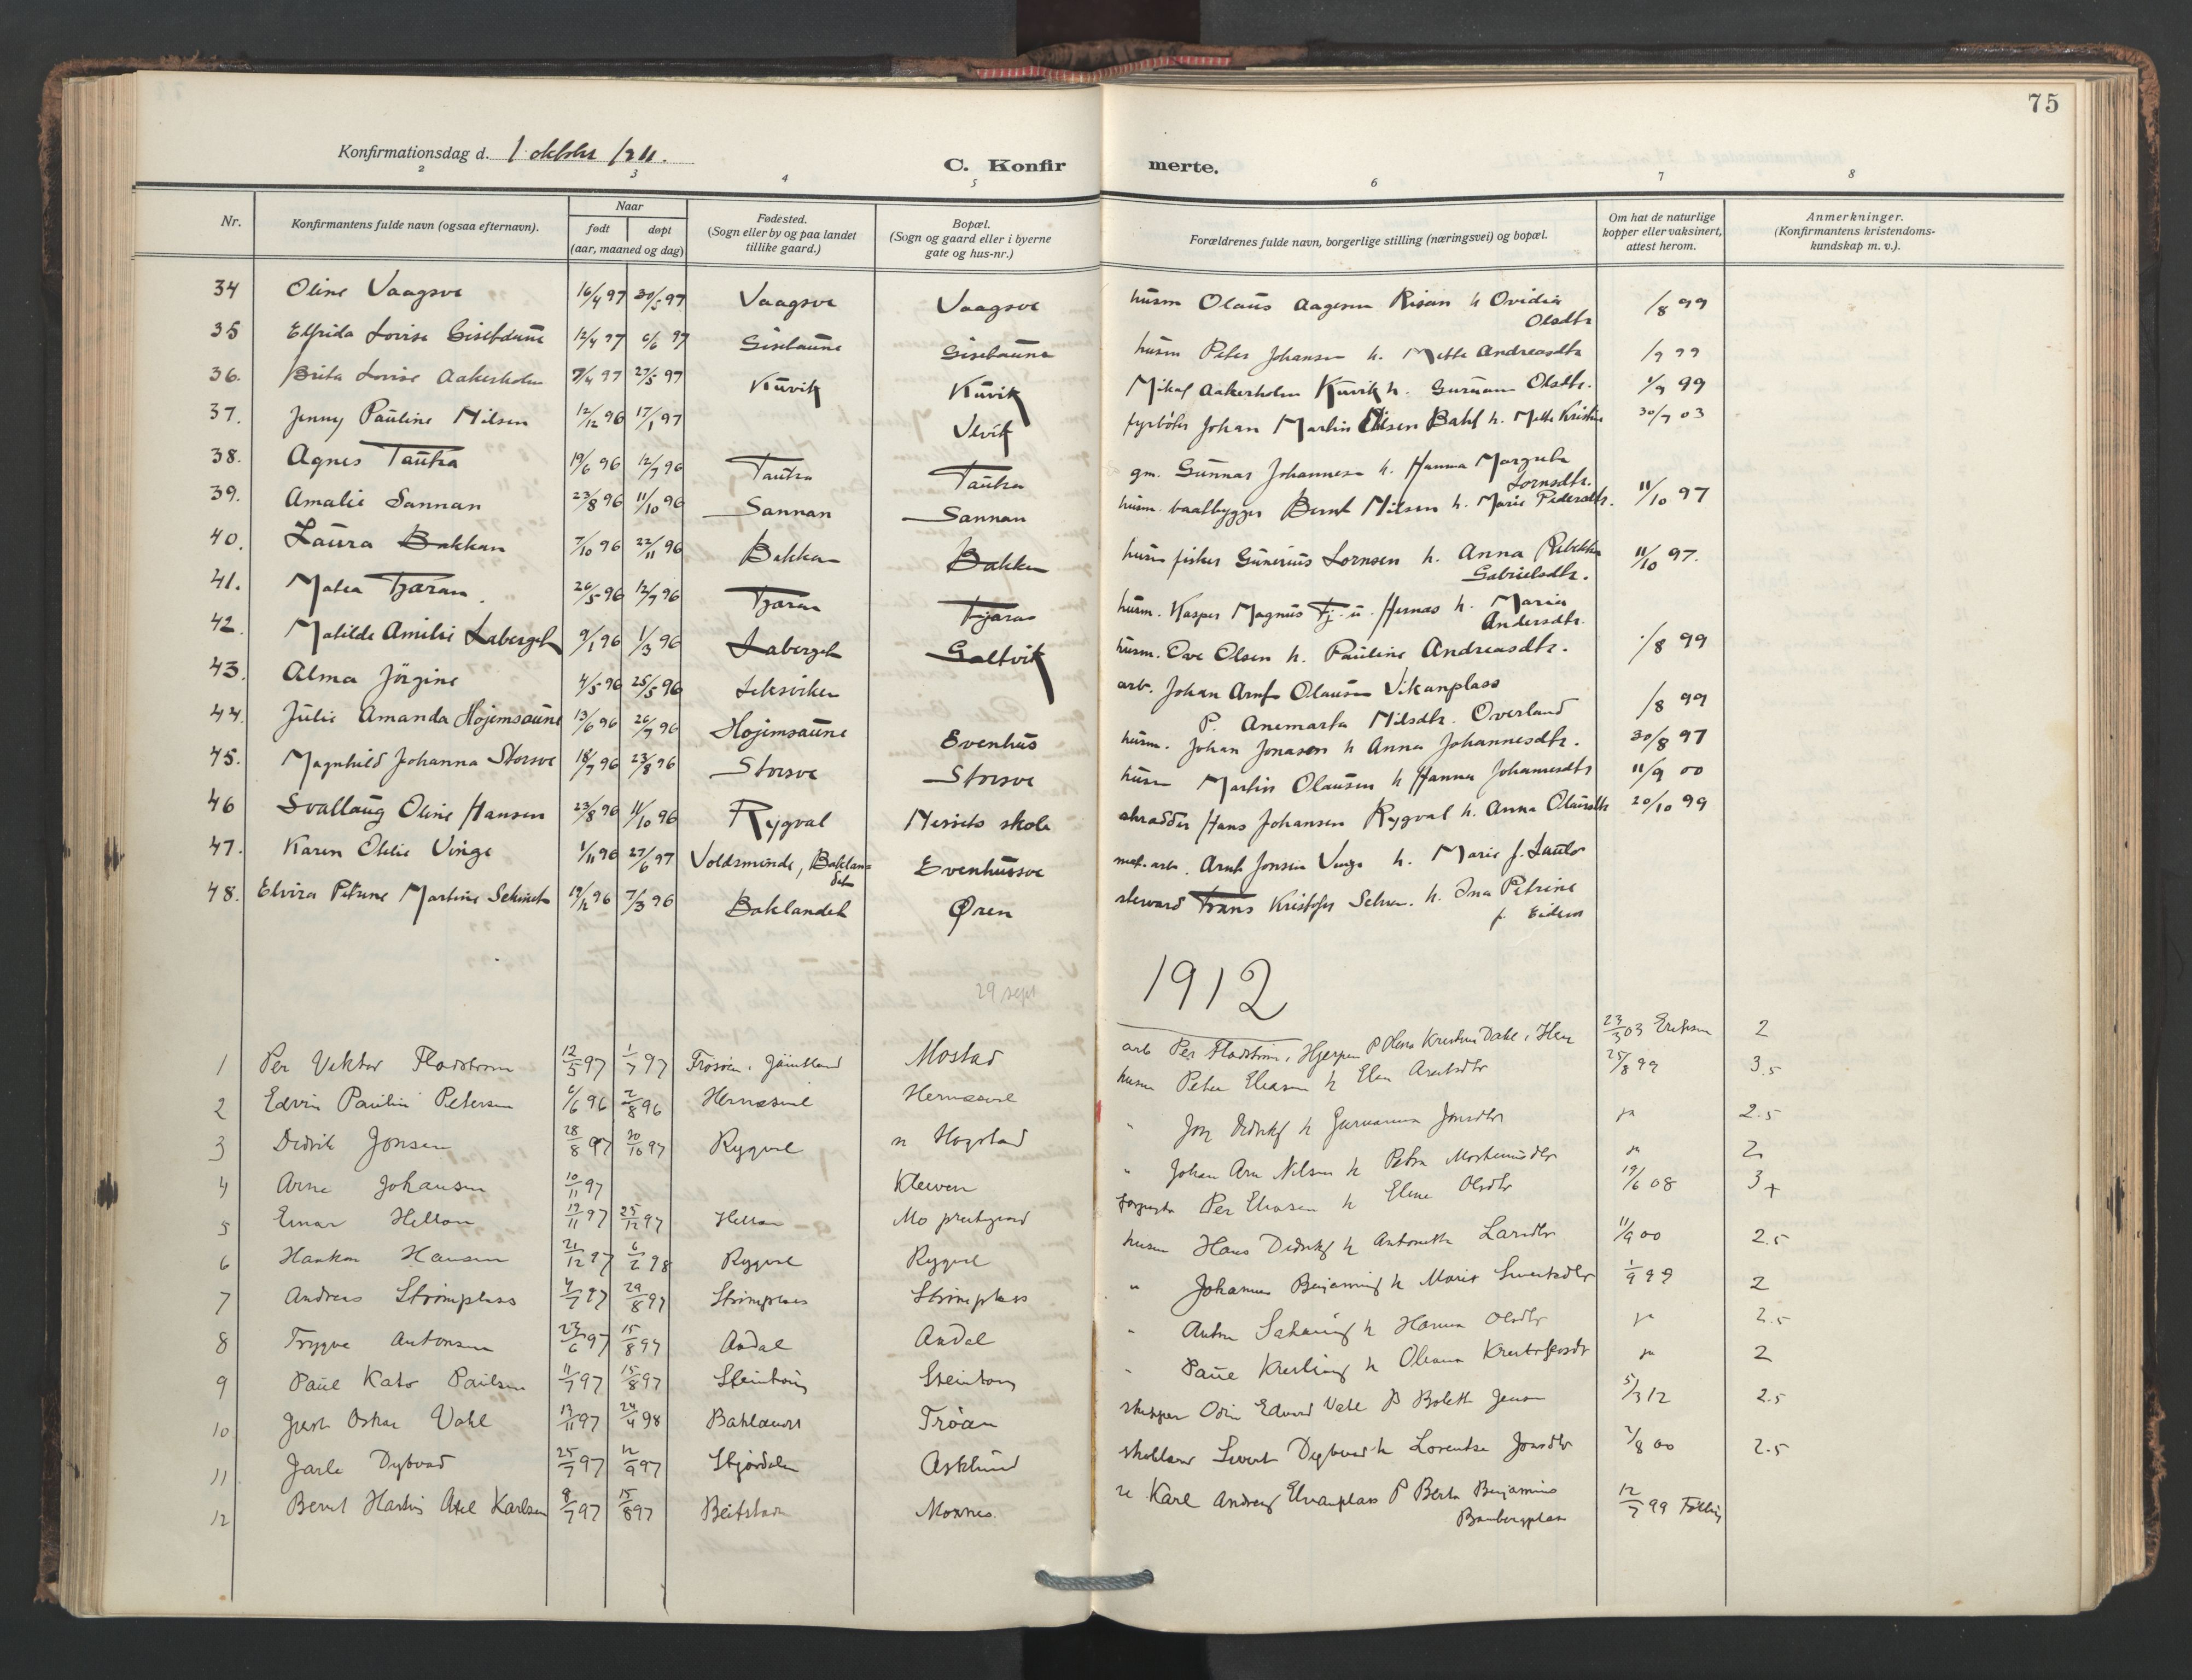 75
Konfirmationsdag d. 1 oktober 1911.
C. Konfirmerte.
2 3 4 5 6 7 8
Nr.
Konfirmantens fulde navn (ogsaa efternavn).
Naar
født døpt
(aar, maaned og dag)
Fødested.
(Sogn eller by og paa landet
tillike gaard.)
Bopæl.
(Sogn og gaard eller i byerne
gate og hus-nr.)
Forældrenes fulde navn, borgerlige stilling (næringsvei) og bopæl.
Om hat de naturlige
kopper eller vaksinert,
attest herom.
Anmerkninger.
(Konfirmantens kristendoms-
kundskap m. v.).
34 Oline Vaagsve 16/4 97 30/5 97 Vaagsve Vaagsve husm Olaus Aagesen Risan h Ovidia /8 99
Olsdtr
35 Elfrida Lovise Giseldaune 12/4 97 6/6 97 Giselaune Giselaune husm Peter Johansen h. Mette Andreasdtr /9 99
36. Brita Lovise Aakerholm 7/4 97 27/5 97 Kuvik Kuvik Mikal Aakerholm Kuvik h. Olsdtr. 1/9 99
37. Jenny Pauline Nilsen 12/12 96 17/1 97 Ulvik fyrbøter Johan Martin Nilsen h. Mette Kristine 30/7 03
38. Agnes Tautra 19/6 96 12/7 96 Tautra Tautra gm. Gunnar Johannesen h. Hanna Margrete
Lornsdtr.
39. Amalie Sannan 23/8 96 11/10 96 Sannan Sannan husm. baatbygger Bernt Nilsen h. Marie Pedersdtr. 11/10 97
40. Laura Bakken 7/10 96 22/11 96 Bakken Bakken husm fisker Gunerius Lornsen h. Anna Rebekka 11/10 97.
Gabrielsdtr.
41. Matea Tjæran 26/5 96 12/7 96 Tjæran Tjæran husm. Kasper Magnus Tj. u. Hernes h. Maria
Andersdtr.
42. Matilde Amilie Laberget 9/1 96 1/3 96 Laberget Galtvik husm. Ove Olsen h. Pauline Andreasdtr. /8 99
43. Alma Jörgine 4/5 96 25/5 96 Leksviken arb. Johan Arnt Olausen Vikanplass
P. Anemarta Nilsdtr. Overland /8 99
44. Julie Amanda Hojemsaune 13/6 96 26/7 96 Hojemsaune Evenhus husm. Johan Jonasen h Anna Johannesdtr. 30/8 97
45. Magnhild Johanna Storsve 18/7 96 23/8 96 Storsve Storsve husm Martin Olausen h Hanna Johannesdtr 11/9 00
46 Svallaug Oline Hansen 23/8 96 11/10 96 Rygval Nesset skole skrædder Hans Johansen Rygval h. Anna Olausdtr 20/10 99
47. Karen Otilie Vinge 1/11 96 27/6 97 Voldsminde, Baklan- Evenhussve arb. Arnt Jonsen Vinge h. Marie f.
det
48. Elvira Petrine Martine 7/3 96 Baklandet Øren steward Frans Kristofer h. Ina Petrine
f. Eidem
29 sept
1912
1 Per Viktor Flodstrom 12/5 97 1/7 97 Frösön, Jämtland Mostad arb Per Flodström, Hjerpen P Olena Kristine Dahl, 23/3 03 Eriksen 2
2 Edvin Paulin Petersen 6/6 96 2/8 96 husm Peter Eliasen h Elen 25/8 99 3.5
3 Didrik Jonsen 28/8 97 30/10 97 Rygvel n Hogstad " Jon Didrikss h Gurianna Jonsdtr ja 2.5
4 Arne Johansen 10/11 97 Kleiven " Johan Arn Nilsen h Petra ja 2
5 Einar Hellan 19/11 97 25/12 97 Hellan Mo prestegaard Per Eliasen h Eline Olsdtr 19/6 08 3+
6 Haakon Hansen 21/12 97 6/2 98 Rygvel Rygvel husm Hans Didrikss h Antonette Larsdtr 11/9 00 2.5
7 Andreas Strömplass 4/7 97 29/8 97 Strömplass Strömplass " Johannes Benjaminss h Marit Sivertsdtr 1/9 99 2
8 Trygve Antonsen 23/6 97 15/8 97 Ardal Ardal " Anton h Hanna Olsdtr ja 2.5
9 Paul Kato Paulsen 11/7 97 15/8 97 Steinhaug Steinhaug " Paul h Oliana Kristofersdtr ja 2
10 Just Oskar Vahl 13/11 97 24/4 98 Baklandet Tröan skipper Odin Edvard Vahl P Bolette Jensen 5/3 12 2.5
11 Jarle Dybvad 25/7 97 12/9 97 Stjördalen Asklund skollærer Sivert Dybvad h Lorentse Jonsdtr 2/8 00 2.5
12 Bernt Hartvig Aksel Karlsen 8/7 97 15/8 97 Beitstaden Moxnes. Karl Andreas Elvanplass P Berta Benjamins 12/7 99
Bambergplass